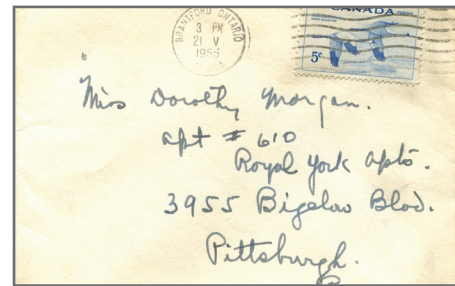 BRANTFORD ONTARIO
3 PM
21 V
1956
CANADA
5¢
Miss Dorothy Morgan.
apt # 610
Royal York apts.
3955 Bigelow Blvd.
Pittsburgh.